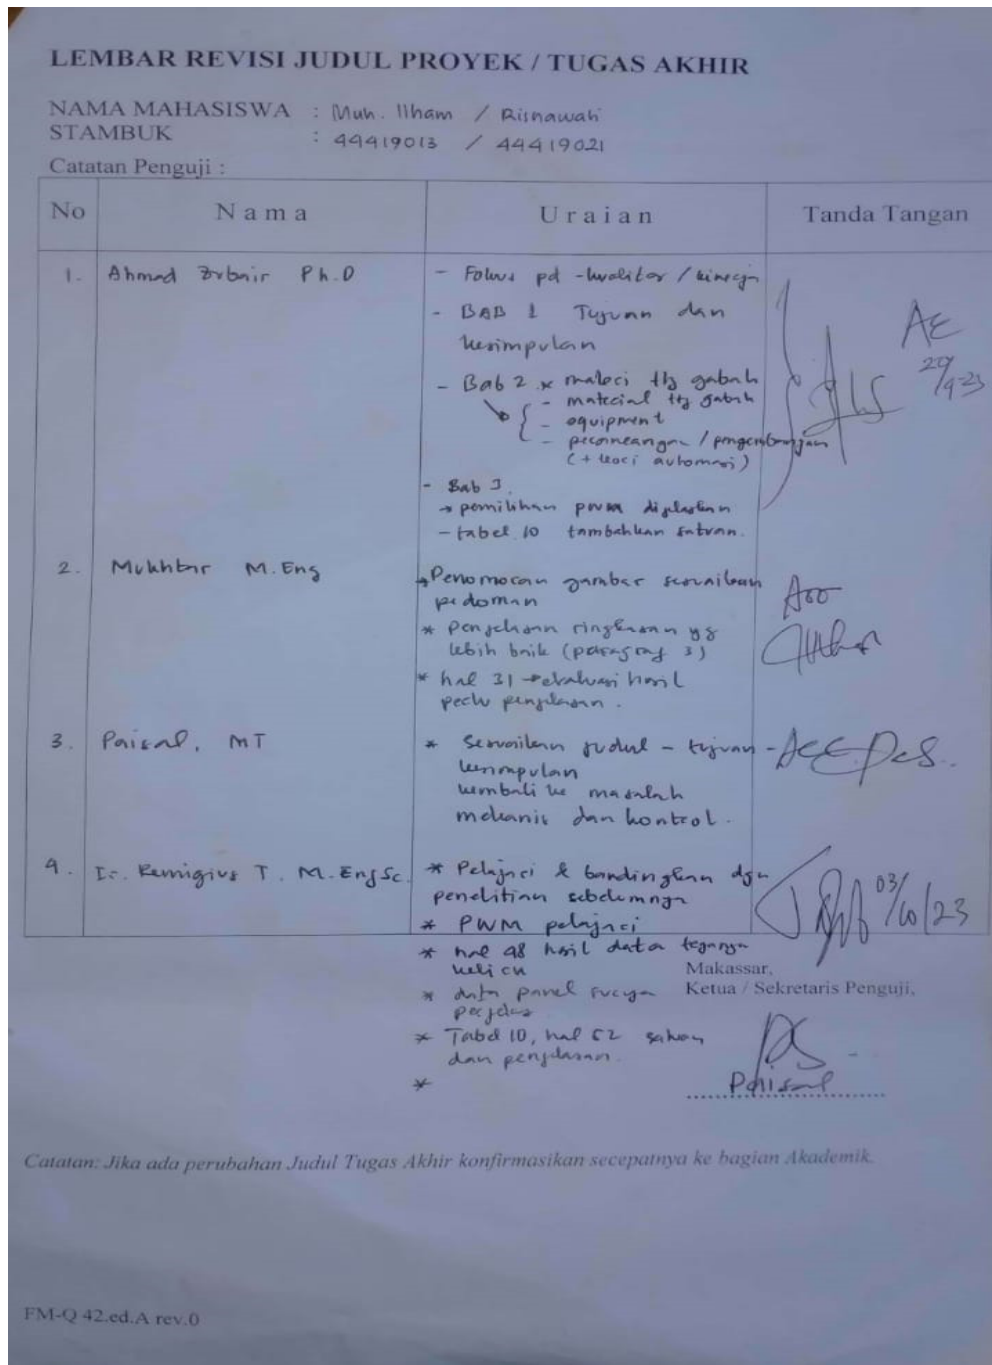 LEMBAR REVISI JUDUL PROYEK / TUGAS AKHIR
NAMA MAHASISWA : Muh. Ilham / Risnawati
STAMBUK : 44419013 / 44419021
Catatan Penguji :
No Nama Uraian Tanda Tangan
1. Ahmad Zubair Ph.D
- Fokus pd - kualitas / kinerja
- BAB 1 Tujuan dan
kesimpulan
- Bab 2 * ttg gabah
- material ttg gabah
- equipment
- perancangan / pengembangan
(+ automasi)
- Bab 3
→ pemilihan PWM dijelaskan
- tabel 10 tambahkan satuan.
2. Mukhtar M.Eng
→ Penomoran gambar sesuaikan
pedoman
* Penjelasan ringkasan yg
lebih baik (paragraf 3)
* hal 31 → evaluasi hasil
perlu penjelasan.
3. Paisal, MT
* Sesuaikan judul - tujuan -
kesimpulan
kembali ke masalah
mekanis dan kontrol.
4. Ir. Remigius T. M.EngSc.
* Pelajari & bandingkan dgn
penelitian sebelumnya
* PWM pelajari
03/10/23
* hal 48 hasil data
* data panel surya
perjelas
* Tabel 10, hal 52
dan penjelasan.
*
Makassar,
Ketua / Sekretaris Penguji,
Paisal
Catatan: Jika ada perubahan Judul Tugas Akhir konfirmasikan secepatnya ke bagian Akademik.
FM-Q 42.ed.A rev.0